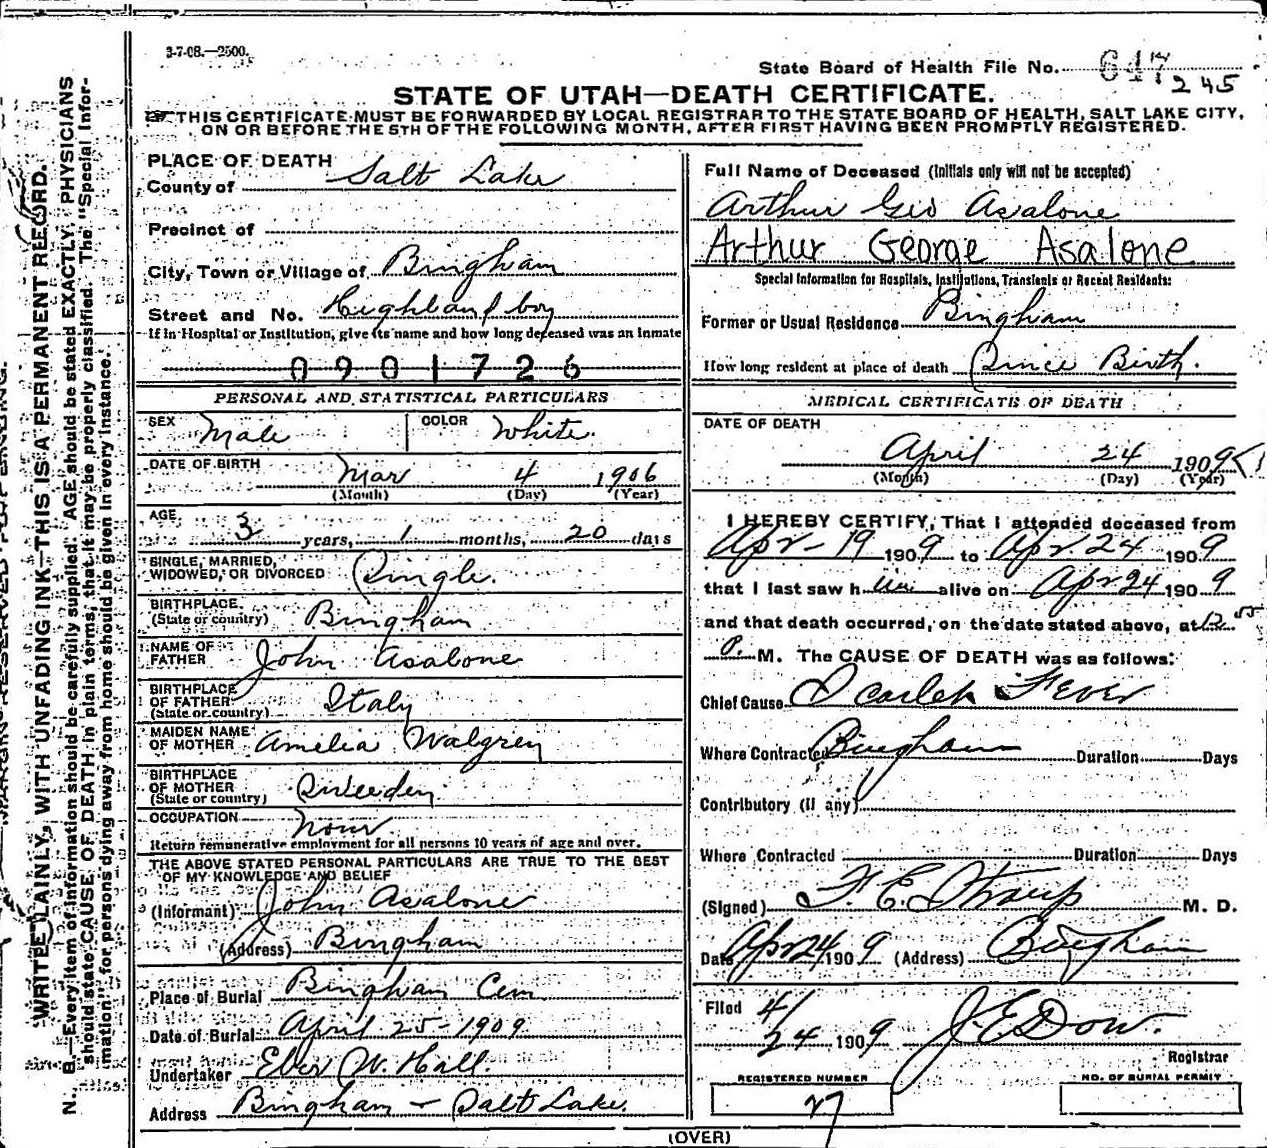 3-7-08.—2500.
State Board of Health File No. 647
245
STATE OF UTAH—DEATH CERTIFICATE.
THIS CERTIFICATE MUST BE FORWARDED BY LOCAL REGISTRAR TO THE STATE BOARD OF HEALTH, SALT LAKE CITY,
ON OR BEFORE THE 5TH OF THE FOLLOWING MONTH, AFTER FIRST HAVING BEEN PROMPTLY REGISTERED.
PLACE OF DEATH
County of Salt Lake
Precinct of
City, Town or Village of Bingham
Street and No. Highland boy
If in Hospital or Institution, give its name and how long deceased was an inmate
0901726
PERSONAL AND STATISTICAL PARTICULARS
SEX Male COLOR White.
DATE OF BIRTH Mar 4 1906
(Month) (Day) (Year)
AGE 3 years, 1 months, 20 days
SINGLE, MARRIED,
WIDOWED, OR DIVORCED Single.
BIRTHPLACE
(State or country) Bingham
NAME OF
FATHER John Asalone
BIRTHPLACE
OF FATHER
(State or country) Italy
MAIDEN NAME
OF MOTHER Amelia Walgren
BIRTHPLACE
OF MOTHER
(State or country) Sweeden
OCCUPATION None
Return remunerative employment for all persons 10 years of age and over.
THE ABOVE STATED PERSONAL PARTICULARS ARE TRUE TO THE BEST
OF MY KNOWLEDGE AND BELIEF
(Informant) John Asalone
(Address) Bingham
Place of Burial Bingham Cem
Date of Burial April 25-1909
Undertaker Eber W. Hall.
Address Bingham + Salt Lake.
Full Name of Deceased (Initials only will not be accepted)
Arthur Geo Asalone
Arthur George Asalone
Special Information for Hospitals, Institutions, Transients or Recent Residents:
Former or Usual Residence Bingham
How long resident at place of death Since Birth.
MEDICAL CERTIFICATE OF DEATH
DATE OF DEATH
April 24 1909
(Month) (Day) (Year)
I HEREBY CERTIFY, That I attended deceased from
Apr-19 1909 to Apr 24 1909
that I last saw him alive on Apr 24 1909
and that death occurred, on the date stated above, at 12 55
P. M. The CAUSE OF DEATH was as follows:
Chief Cause Scarlet Fever
Where Contracted Bingham Duration Days
Contributory (if any)
Where Contracted Duration Days
(Signed) F. E. Straup M. D.
Date Apr 24 1909 (Address) Bingham
Filed 4/24 1909 J. E. Dow.
Registrar
REGISTERED NUMBER
27
NO. OF BURIAL PERMIT
(OVER)
WRITE PLAINLY, WITH UNFADING INK—THIS IS A PERMANENT RECORD.
N. B.—Every item of information should be carefully supplied. AGE should be stated EXACTLY. PHYSICIANS
should state CAUSE OF DEATH in plain terms, that it may be properly classified. The "Special Infor-
mation" for persons dying away from home should be given in every instance.